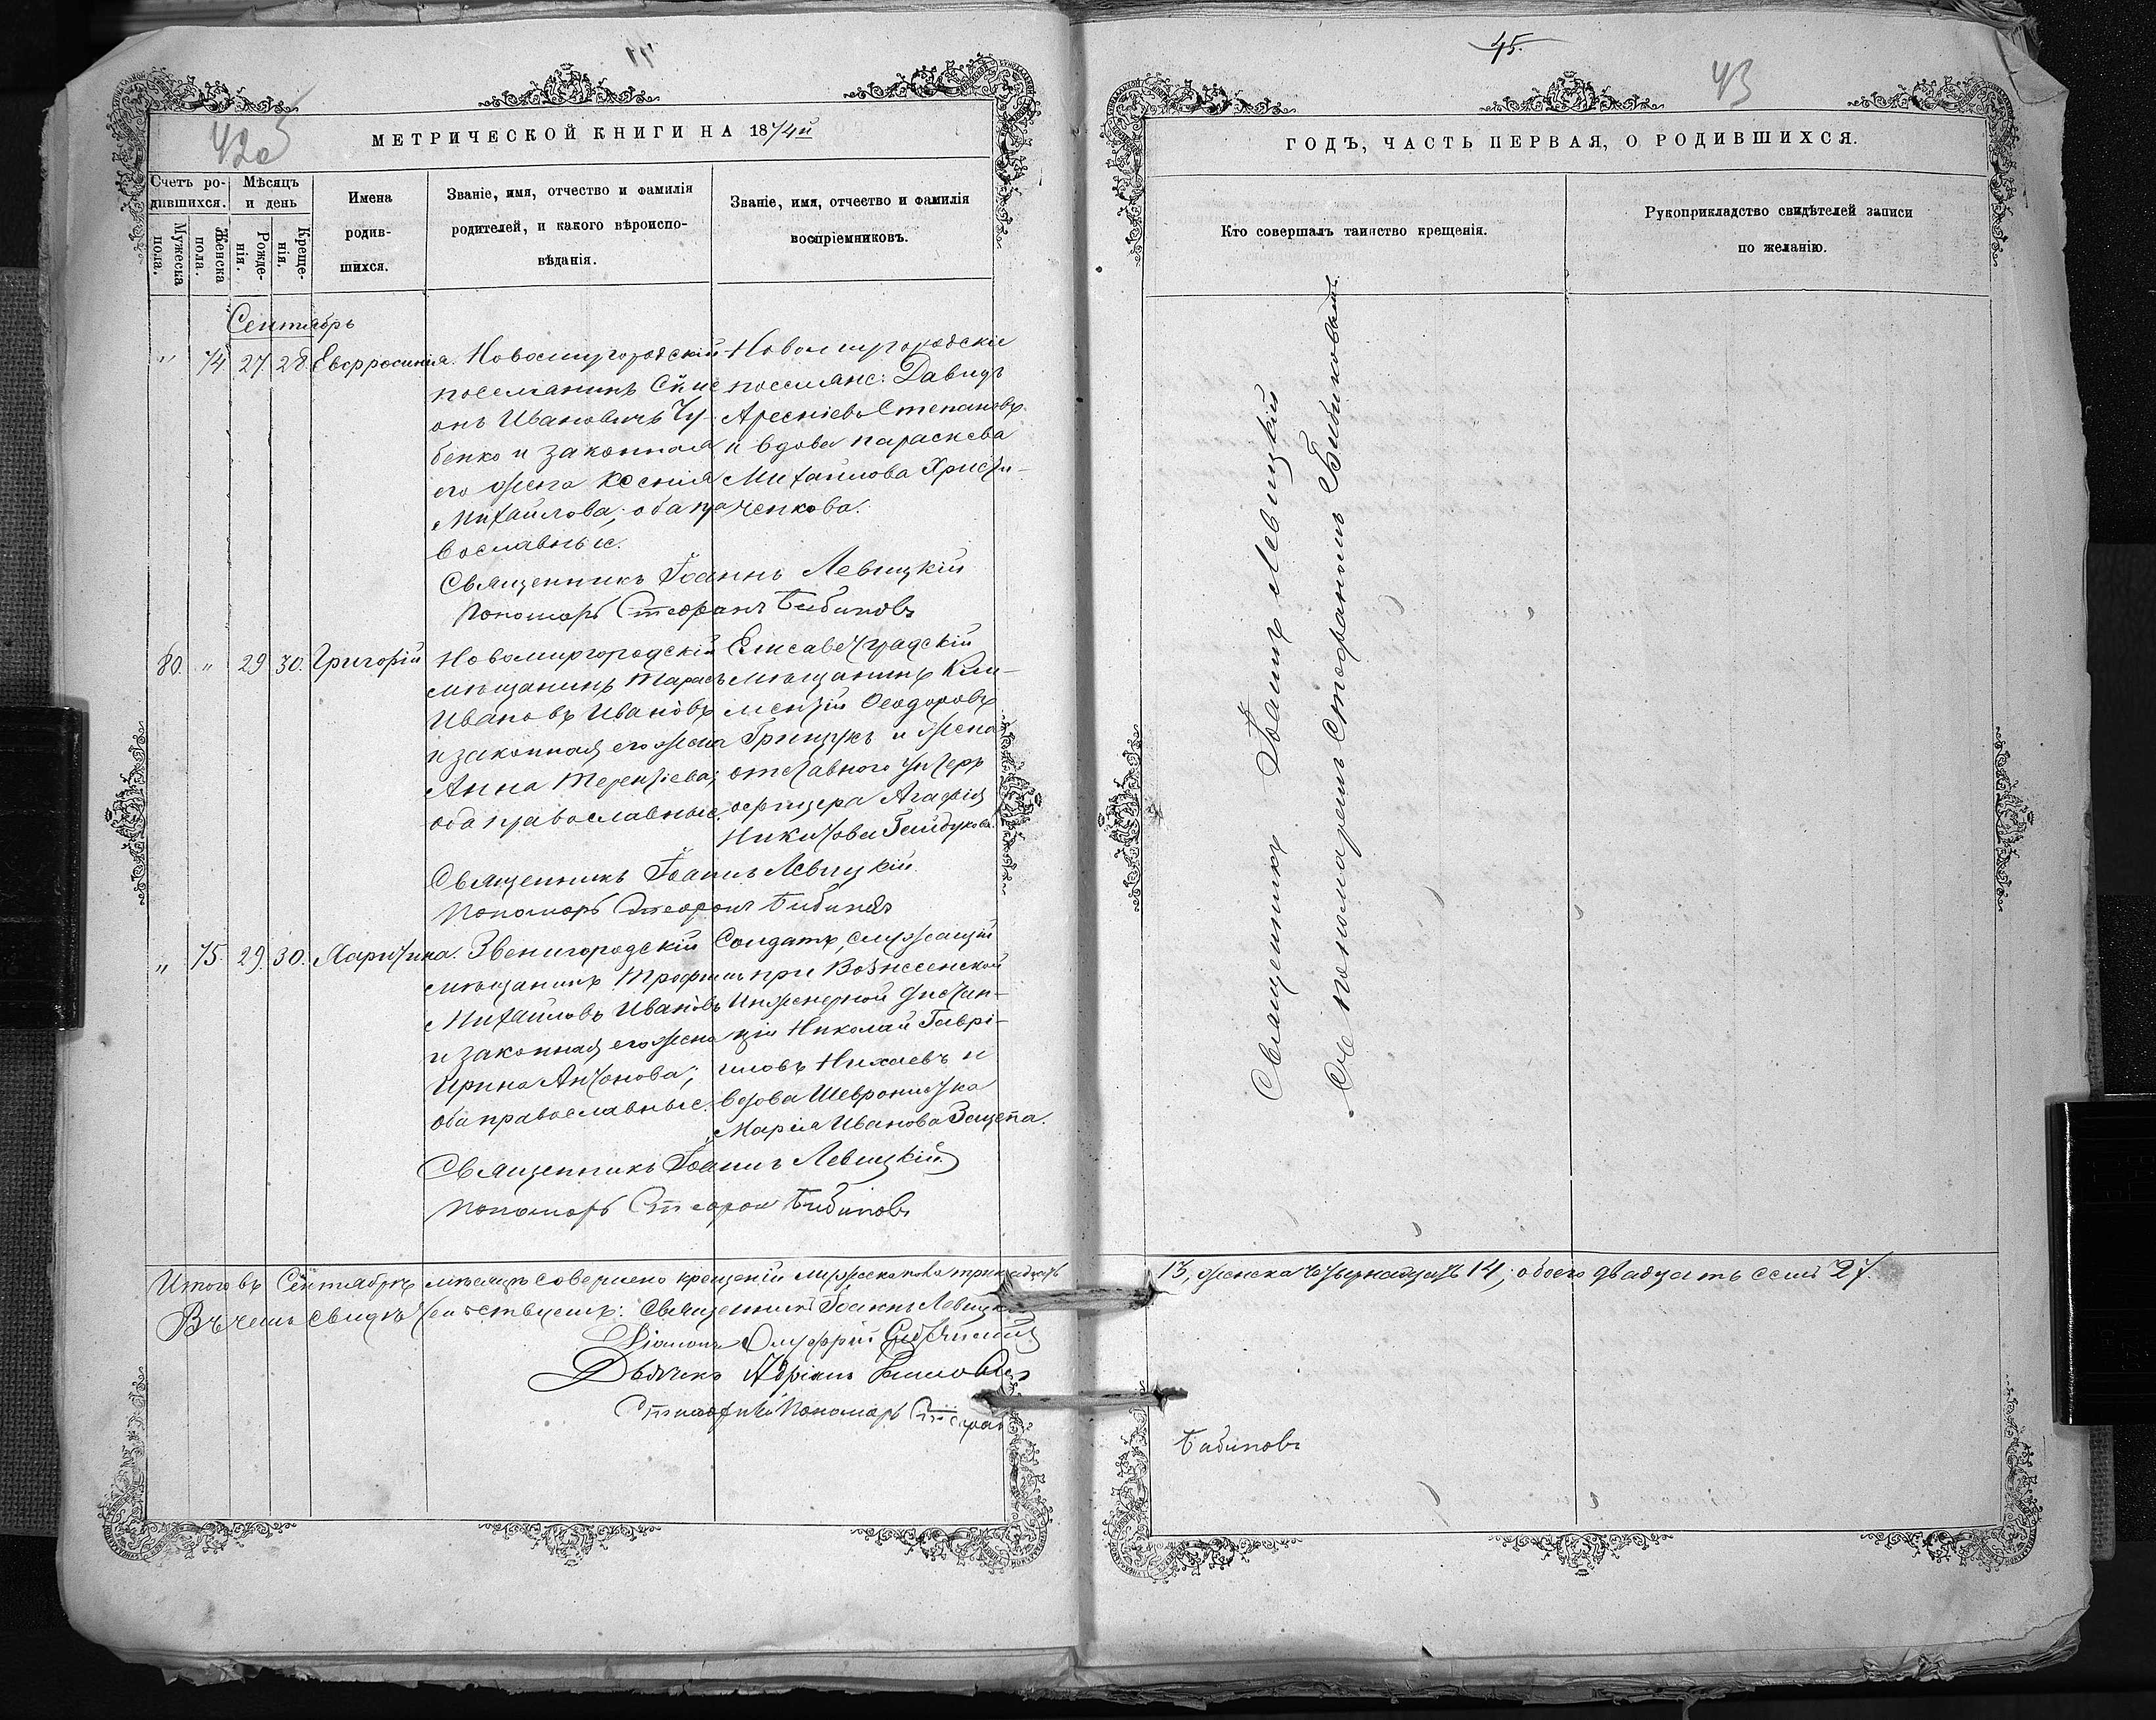 45.
43
МЕТРИЧЕСКОЙ КНИГИ НА 1874й
ГОДЪ, ЧАСТЬ ПЕРВАЯ, О РОДИВШИХСЯ.
Счетъ ро-
дившихся.
Мужеска
пола.
Женска
пола.
Мѣсяцъ
и день
Рожде-
нія.
Креще-
нія.
Имена
родив-
шихся.
Званіе, имя, отчество и фамилія
родителей, и какого вѣроиспо-
вѣданія.
Званіе, имя, отчество и фамилія
воспріемниковъ.
Кто совершалъ таинство крещенія.
Рукоприкладство свидѣтелей записи
по желанію.
Сентябрь
" 74 27 28 Евфросинія.
Новомиргородскій
поселянинъ
онъ Ивановичъ Чу-
бенко и законная
его жена Ксенія
Михайлова; оба пра
вославные.
Новомиргородскіе
поселяне: Давидъ
Степановъ
и вдова Параскева
Михайлова Христи-
ченкова.
Священникъ Іоаннъ Левицкій
Пономарь Стефанъ Бибиковъ
80. " 29 30. Григорій
Новомиргородскій
мѣщанинъ Тарасъ
Ивановъ Ивановъ
и законная его жена
Анна Терентіева;
оба православные.
Елисаветградскій
мѣщанинъ Кли-
ментій Ѳеодоровъ
Грицукъ и жена
отставного унтеръ
офицера Агафія
Никитова Гайдукова.
Священникъ Іоаннъ Левицкій
Пономарь Стефанъ Бибиковъ
" 75. 29. 30. Харитина.
Звенигородскій
мѣщанинъ Трофимъ
Михайловъ Ивановъ
и законная его жена
Ирина Антонова;
оба православные.
Солдатъ, служащій
при Вознесенской
Инженерной Дистан-
ціи Николай Гаврі-
иловъ Нихаевъ и
вдова Шевронистка
Марія Иванова Защепа.
Священникъ Іоаннъ Левицкій
Пономарь Стефанъ Бибиковъ
Священникъ Іоаннъ Левицкій
Съ пономаремъ Стефаномъ Бибиковымъ.
Итого въ Сентябрѣ мѣсяцѣ совершено крещеній мужеска пола тринадцать
13, женска четырнадцать 14; обоего двадцать семь 27.
Въ чемъ свидѣтельствуемъ: Священникъ Іоаннъ Левицкій
Діаконъ Онуфрій
Дьячекъ Адріанъ
Пономарь Стефанъ
Бибиковъ